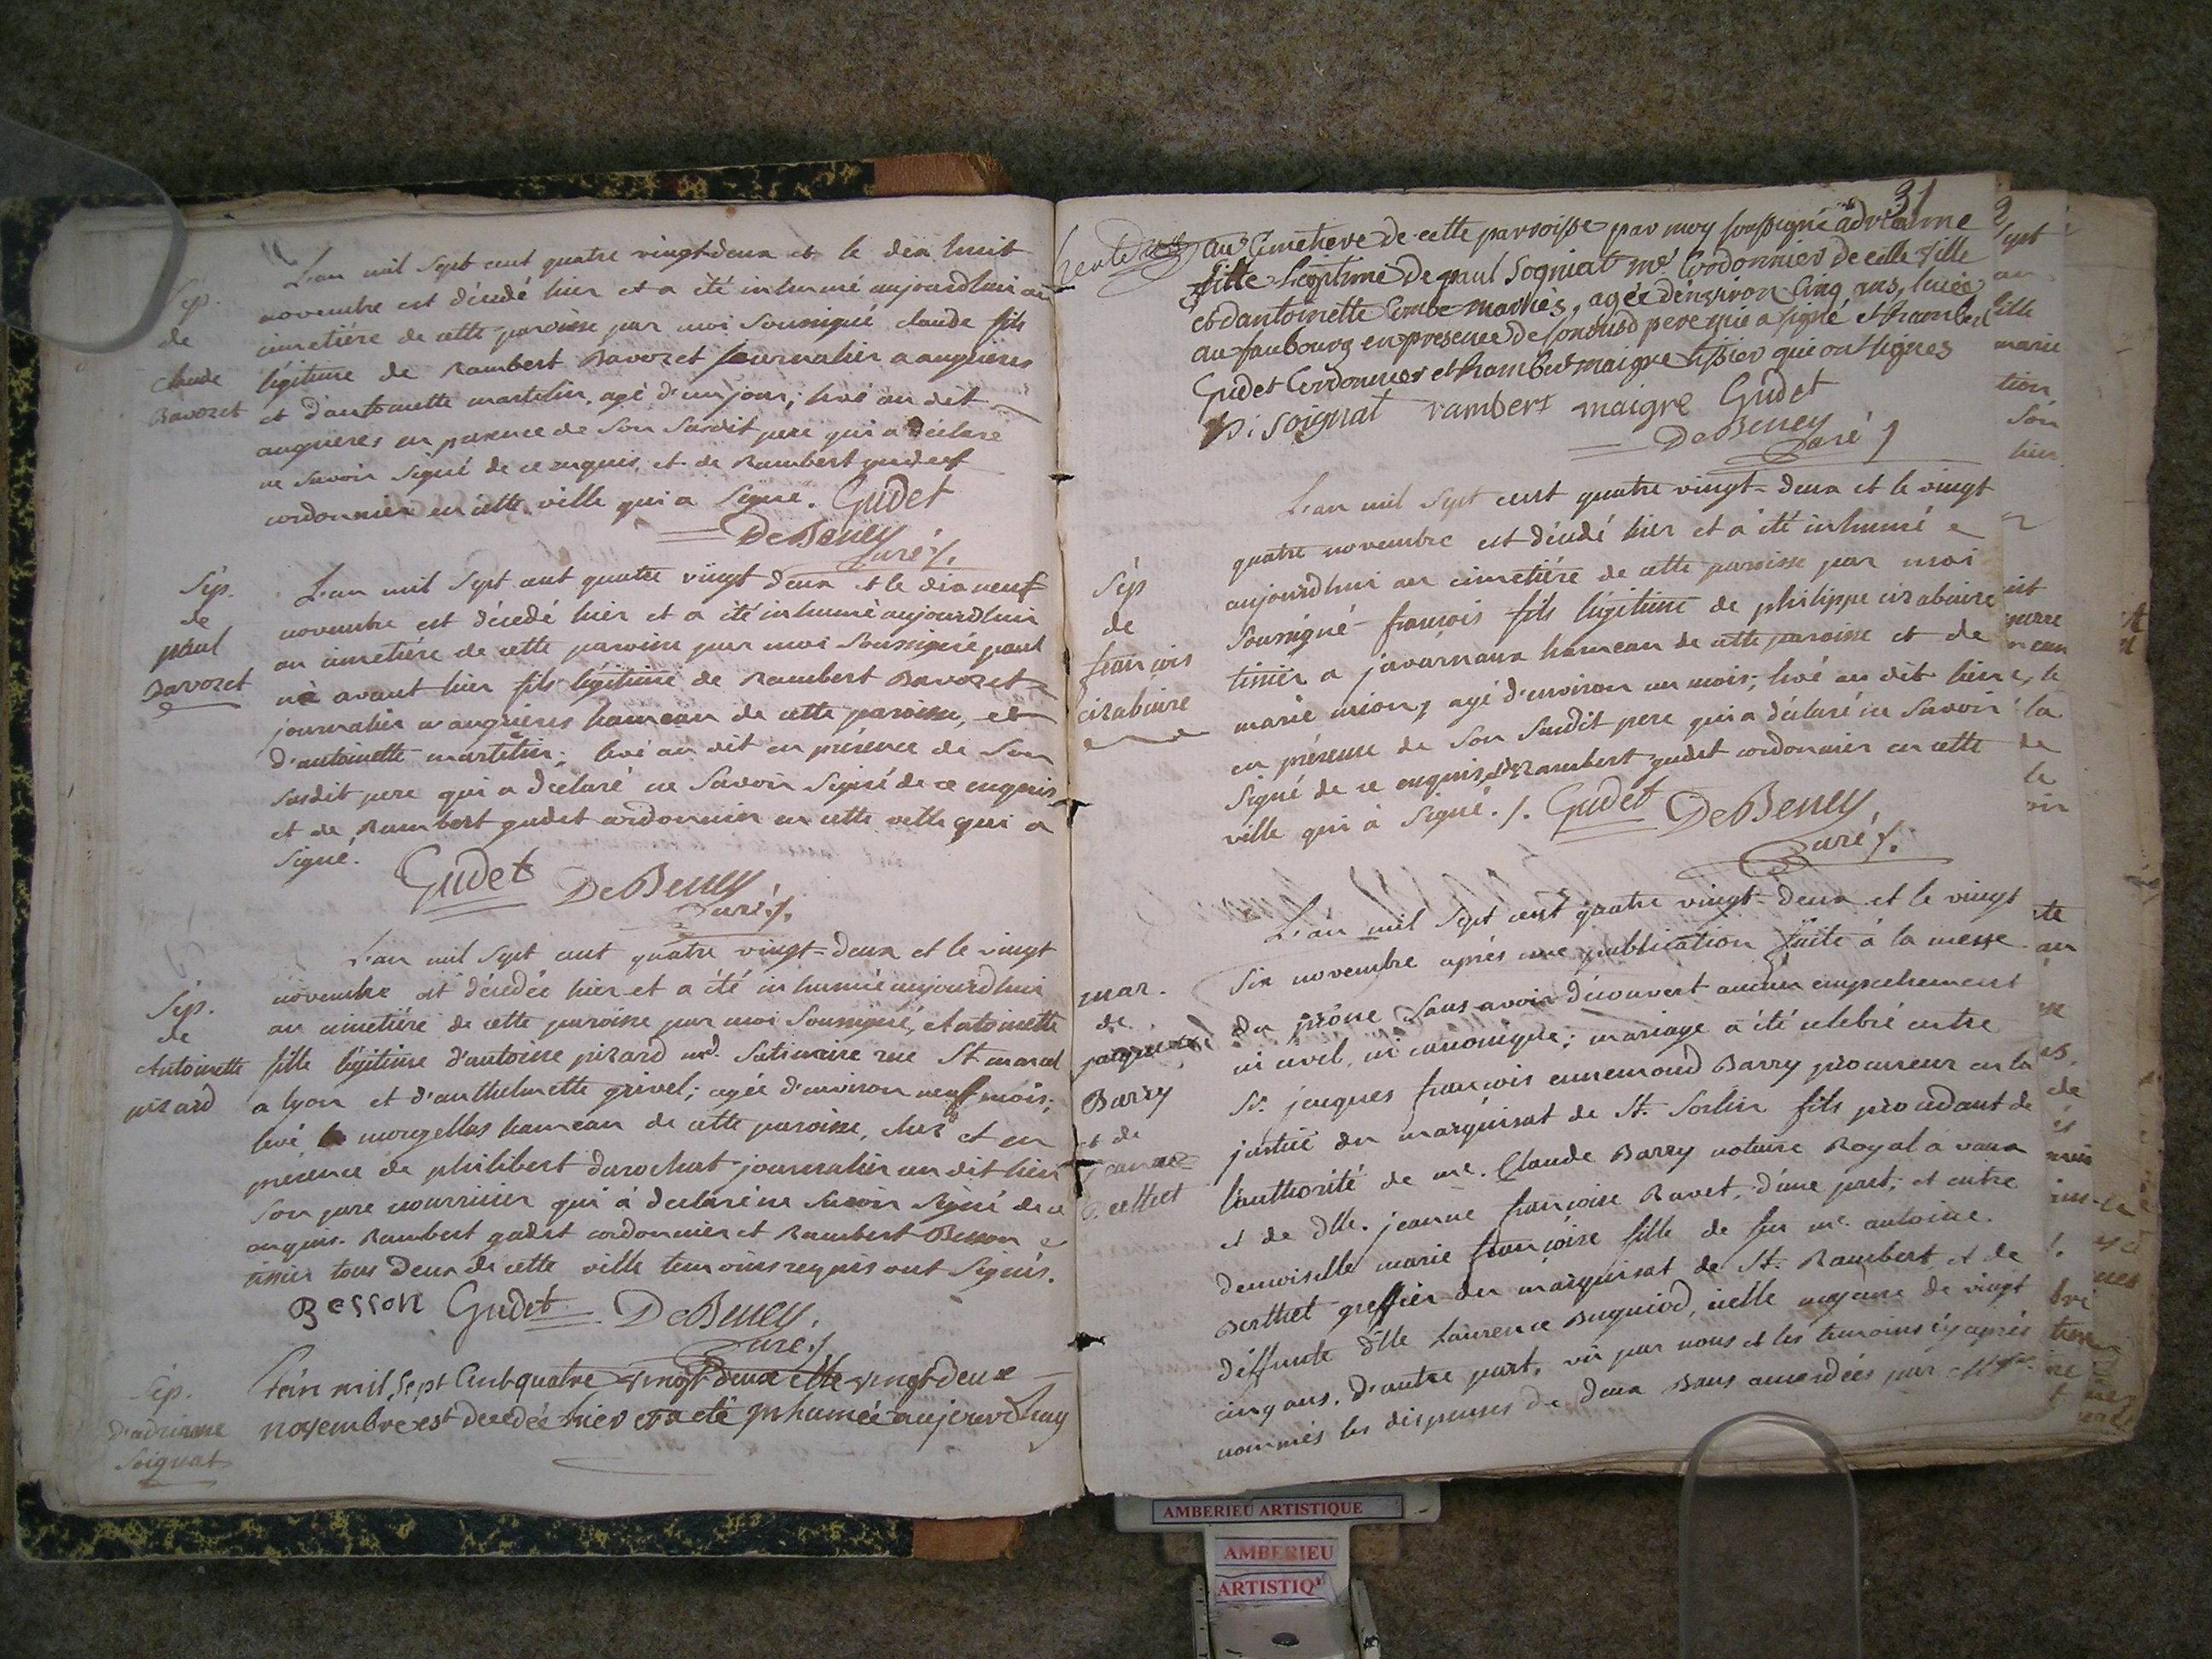 L'an mil Sept cent quatre vingt-deux et le dix huit
Sep.
de
Claude
Bavozet
novembre est décédé hier et a été inhumé aujourdhui au
cimetiére de cette paroisse par moi Soussigné claude fils
légitime de Rambert Bavozet journalier a angrieres
et d'antoinette martelin, agé d'un jour; livé au dit
angrieres en présence de Son Susdit pere qui a déclaré
ne Savoir Signé de ce enquis, et de Rambert gudet
cordonnier en cette ville qui a Signé. Gudet
DeBeney
Curé ./.
Sép.
de
paul
Bavozet
L'an mil Sept cent quatre vingt deux et le dix neuf
novembre est décedé hier et a été inhumé aujourdhui
au cimetiére de cette paroisse par moi Soussigné paul
né avant hier fils légitime de Rambert Bavozet
journalier a angrieres hameau de cette paroisse, et
d'antoinette martelin; livé au dit en présence de Son
Susdit pere qui a déclaré ne Savoir Signé de ce enquis
et de Rambert gudet cordonnier en cette ville qui a
Signé.
Gudet DeBeney
Curé ./.
Sép.
de
Antoinette
pizard
L'an mil Sept cent quatre vingt=deux et le vingt
novembre est décédée hier et a été inhumée aujourdhui
au cimetiére de cette paroisse par moi Soussigné, Antoinette
fille légitime d'antoine pizard md. Satinaire rue St marcel
a lyon et d'anthelmette grivel; agée d'environ neuf mois;
livé a morgelas hameau de cette paroisse, chez et en
présence de philibert durochat journalier au dit lieu
Son pere nourricier qui a déclaré ne Savoir Signé de ce
enquis. Rambert gudet cordonnier et Rambert Besson
tissier tous deux de cette ville temoins requis ont Signés.
Besson Gudet DeBeney
Curé ./
Sép.
d'adrianne
Soignat
L'an mil Sept Cent quatre vingt deux et le vingt deux
novembre est decedée hier et a eté inhumée aujourdhuy
31
au Cimetiere de cette parroisse par moy soussigné adrianne
fille Legitime de paul Sogniat me. Cordonnier de cette ville
et d'antoinette Combe mariés, agée d'environ Cinq ans, livée
au faubourg en presence de son susd pere qui a signé et Rambert
Gudet Cordonnier et Rambert maigre tissier qui ont signes
p. soignat rambert maigre Gudet
DeBeney
Curé ./
Sép
de
françois
cizabuire
L'an mil Sept cent quatre vingt=deux et le vingt
quatre novembre est décédé hier et a été inhumé
aujourdhui au cimetiére de cette paroisse par moi
Soussigné françois fils légitime de philippe cizabuire
tissier a javornaux hameau de cette paroisse et de
marie mion, agé d'environ un mois; livé au dit lieu
en présence de Son Susdit pere qui a déclaré ne Savoir
Signé de ce enquis, et de Rambert gudet cordonnier en cette
ville qui a Signé. /. Gudet DeBeney
Curé ./.
mar.
de
jacques
Barry
et de
L'an mil Sept cent quatre vingt-deux et le vingt
Six novembre aprés une publication faite à la messe
du prône Sans avoir découvert aucun empechement
ni civil, ni canonique; mariage a été celebré entre
Sr. jacques françois ennemond Barry procureur en la
justice du marquisat de St. Sorlin fils procédant de
l'authorité de me. Claude Barry notaire Royal a vaux
et de dlle. jeanne françoise Ravet, d'une part; et entre
demoiselle marie françoise fille de feu me. antoine
Berthet greffier du marquisat de St. Rambert et de
déffunte dlle Laurence Bugniod, icelle majeure de vingt
cinq ans, d'autre part, vû par nous et les temoins cy aprés
nommés les dispenses de deux Bans accordées par